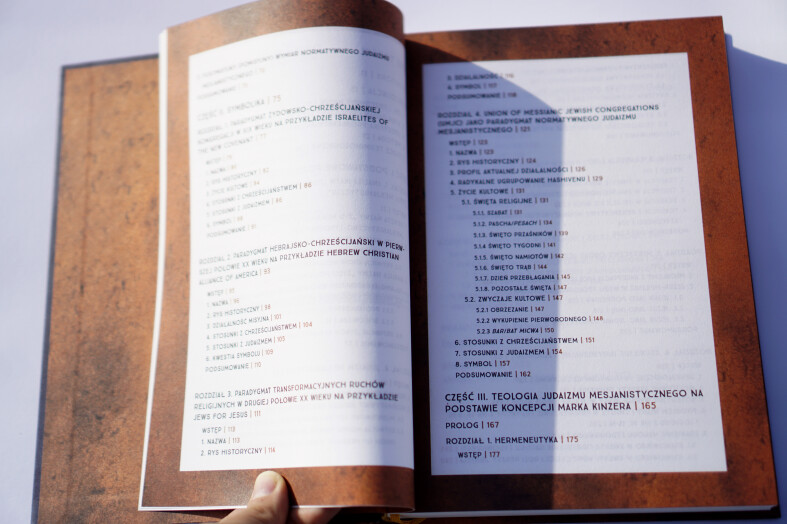 WYMIAR NORMATYWNEGO JUDAIZMU
MESJANISTYCZNEGO
PODSUMOWANIE
CZĘŚĆ II. SYMBOLIKA | 75
ROZDZIAŁ 1. PARADYGMAT ŻYDOWSKO-CHRZEŚCIJAŃSKIEJ
W XIX WIEKU NA PRZYKŁADZIE ISRAELITES OF
THE NEW COVENANT
WSTĘP
1. NAZWA
2. RYS HISTORYCZNY
3. ŻYCIE KULTOWE
4. STOSUNKI Z CHRZEŚCIJAŃSTWEM | 86
5. STOSUNKI Z JUDAIZMEM
6. SYMBOL
PODSUMOWANIE
ROZDZIAŁ 2. PARADYGMAT HEBRAJSKO-CHRZEŚCIJAŃSKI W PIERW-
SZEJ POŁOWIE XX WIEKU NA PRZYKŁADZIE HEBREW CHRISTIAN
ALLIANCE OF AMERICA | 93
WSTĘP
1. NAZWA | 96
2. RYS HISTORYCZNY | 98
3. DZIAŁALNOŚĆ MISYJNA | 101
4. STOSUNKI Z CHRZEŚCIJAŃSTWEM | 104
5. STOSUNKI Z JUDAIZMEM | 105
6. KWESTIA SYMBOLU | 109
PODSUMOWANIE | 110
ROZDZIAŁ 3. PARADYGMAT TRANSFORMACYJNYCH RUCHÓW
RELIGIJNYCH W DRUGIEJ POŁOWIE XX WIEKU NA PRZYKŁADZIE
JEWS FOR JESUS | 111
WSTĘP | 113
1. NAZWA | 113
2. RYS HISTORYCZNY | 114
3. DZIAŁALNOŚĆ | 116
4. SYMBOL | 117
PODSUMOWANIE | 118
ROZDZIAŁ 4. UNION OF MESSIANIC JEWISH CONGREGATIONS
(UMJC) JAKO PARADYGMAT NORMATYWNEGO JUDAIZMU
MESJANISTYCZNEGO | 121
WSTĘP | 123
1. NAZWA | 123
2. RYS HISTORYCZNY | 124
3. PROFIL AKTUALNEJ DZIAŁALNOŚCI | 126
4. RADYKALNE UGRUPOWANIE HASHIVENU | 129
5. ŻYCIE KULTOWE | 131
5.1. ŚWIĘTA RELIGIJNE | 131
5.1.1. SZABAT | 131
5.1.2. PASCHA/PESACH | 134
5.1.3. ŚWIĘTO PRZAŚNIKÓW | 139
5.1.4 ŚWIĘTO TYGODNI | 141
5.1.5. ŚWIĘTO NAMIOTÓW | 142
5.1.6. ŚWIĘTO TRĄB | 144
5.1.7. DZIEŃ PRZEBŁAGANIA | 145
5.1.8. POZOSTAŁE ŚWIĘTA | 147
5.2. ZWYCZAJE KULTOWE | 147
5.2.1 OBRZEZANIE | 147
5.2.2 WYKUPIENIE PIERWORODNEGO | 148
5.2.3 BAR/BAT MICWA | 150
6. STOSUNKI Z CHRZEŚCIJAŃSTWEM | 151
7. STOSUNKI Z JUDAIZMEM | 154
8. SYMBOL | 157
PODSUMOWANIE | 162
CZĘŚĆ III. TEOLOGIA JUDAIZMU MESJANISTYCZNEGO NA
PODSTAWIE KONCEPCJI MARKA KINZERA | 165
PROLOG | 167
ROZDZIAŁ 1. HERMENEUTYKA | 175
WSTĘP | 177